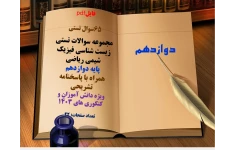 فایل pdf
سوال تستی
مجموعه سوالات تستی
زیست شناسی فیزیک
شیمی ریاضی
پایه دوازدهم
همراه با پاسخنامه
تشریحی
ویژه دانش آموزان و
کنکوری های ۱۴۰۳
تعداد صفحات:
دوازدهم